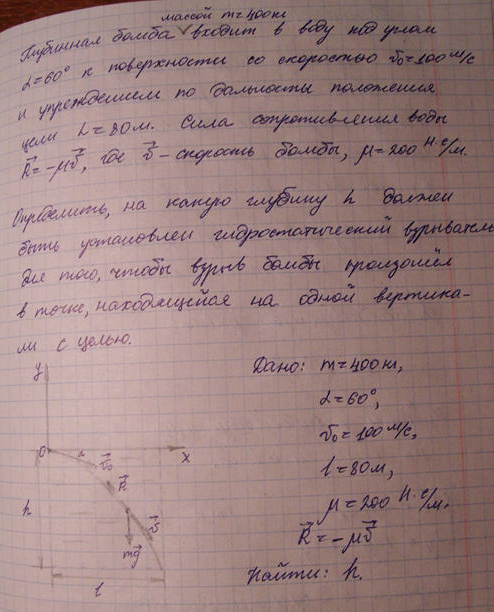 массой m=400кг
Глубинная бомба входит в воду под углом
α=60° к поверхности со скоростью v₀=100 м/с
и упреждением по дальности положения
цели L=80м. Сила сопротивления воды
R⃗=-μv⃗, где v⃗-скорость бомбы, μ=200 Н·с/м.
Определить, на какую глубину h должен
быть установлен гидростатический взрыватель
для того, чтобы взрыв бомбы произошёл
в точке, находящейся на одной вертика-
ли с целью.
Дано: m=400кг,
α=60°,
v₀=100 м/с,
l=80м,
μ=200 Н·с/м.
R⃗=-μv⃗
Найти: h.
y
0
α
v⃗₀
x
R⃗
h
v⃗
mg⃗
l